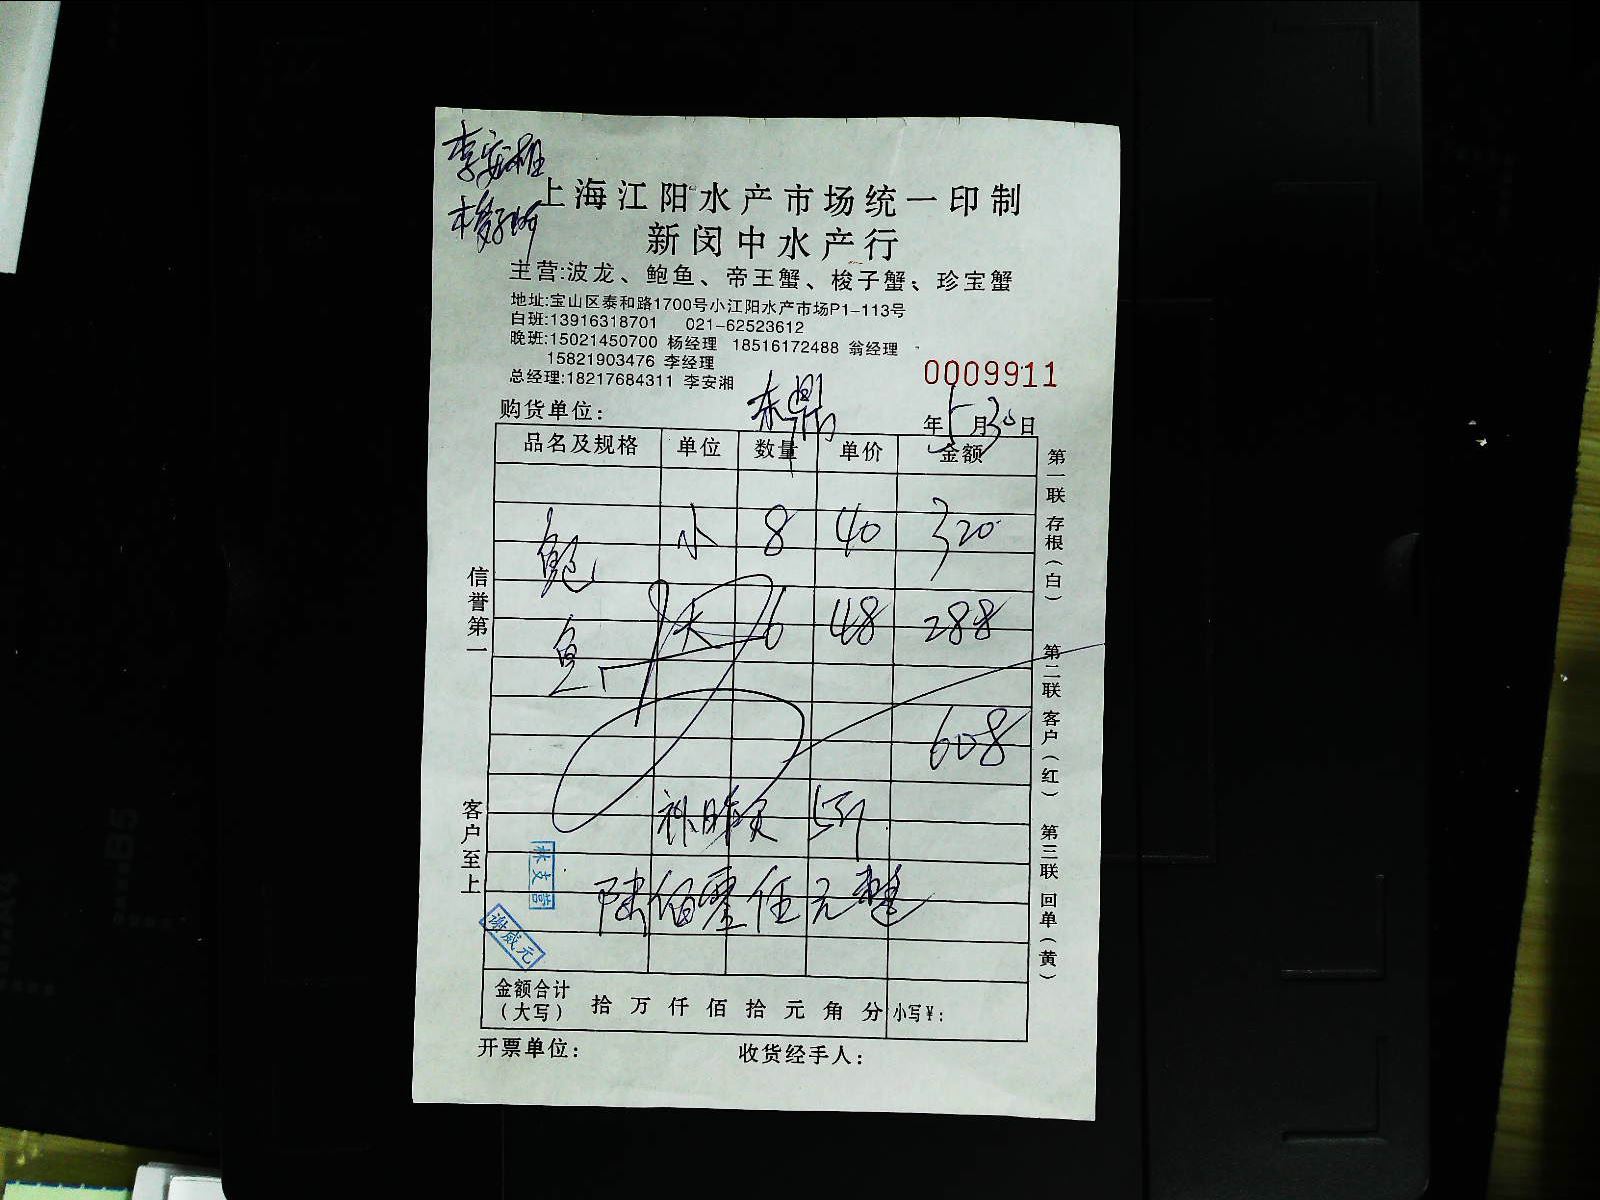 李安湘
上海江阳水产市场统一印制
新闵中水产行
主营:波龙、鲍鱼、帝王蟹、梭子蟹;珍宝蟹
地址:宝山区泰和路1700号小江阳水产市场P1-113号
白班:13916318701 021-62523612
晚班:15021450700 杨经理 18516172488 翁经理
15821903476 李经理
0009911
总经理:18217684311 李安湘
购货单位: 东鼎 年5月30日
品名及规格 单位 数量 单价 金额
鲍鱼 小 8 40 320
大 6 48 288
608
补昨欠 5只
陆佰零伍元整
金额合计(大写) 拾 万 仟 佰 拾 元 角 分 小写¥:
开票单位: 收货经手人:
信誉第一
客户至上
第一联存根(白)
第二联客户(红)
第三联回单(黄)
林支营
谢威元